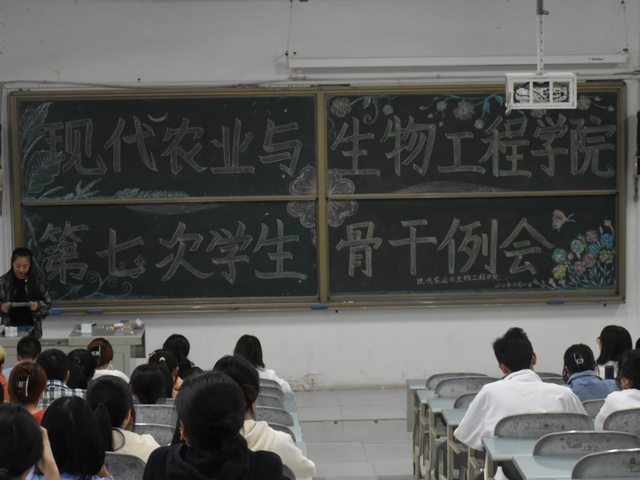 现代农业与生物工程学院
第七次学生骨干例会
现代农业与生物工程学院